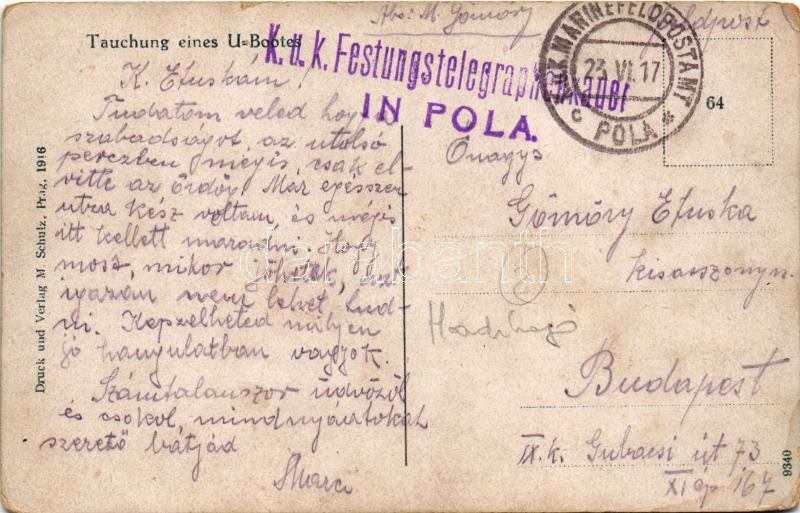 Abs: M. Gömöry
Feldpost
Tauchung eines U-Bootes
K. u. k. Festungstelegraphenkader
IN POLA.
K.u.K. MARINEFELDPOSTAMT
23 VI. 17
c POLA *
64
K. Etuskám!
Tudatom veled hogy a
szabadságot, az utolsó
perczben mégis, csak el-
vitte az ördög. Már egészen
utra kész voltam, és mégis
itt kellett maradni. Hogy
mosz, mikor jövök, azt
igazán nem lehet tud-
ni. Kepzelheted milyen
jó hangulatban vagyok.
Számtalanszor üdvözöl
és csokol, mindnyajatokat
szerető bátjád
Marci
Önagys
Gömöry Etuska
kisasszonyn.
Budapest
IX. k. Gubacsi út 73
XI ép 167
Druck und Verlag M. Schulz, Prag, 1916
9340
darabanth